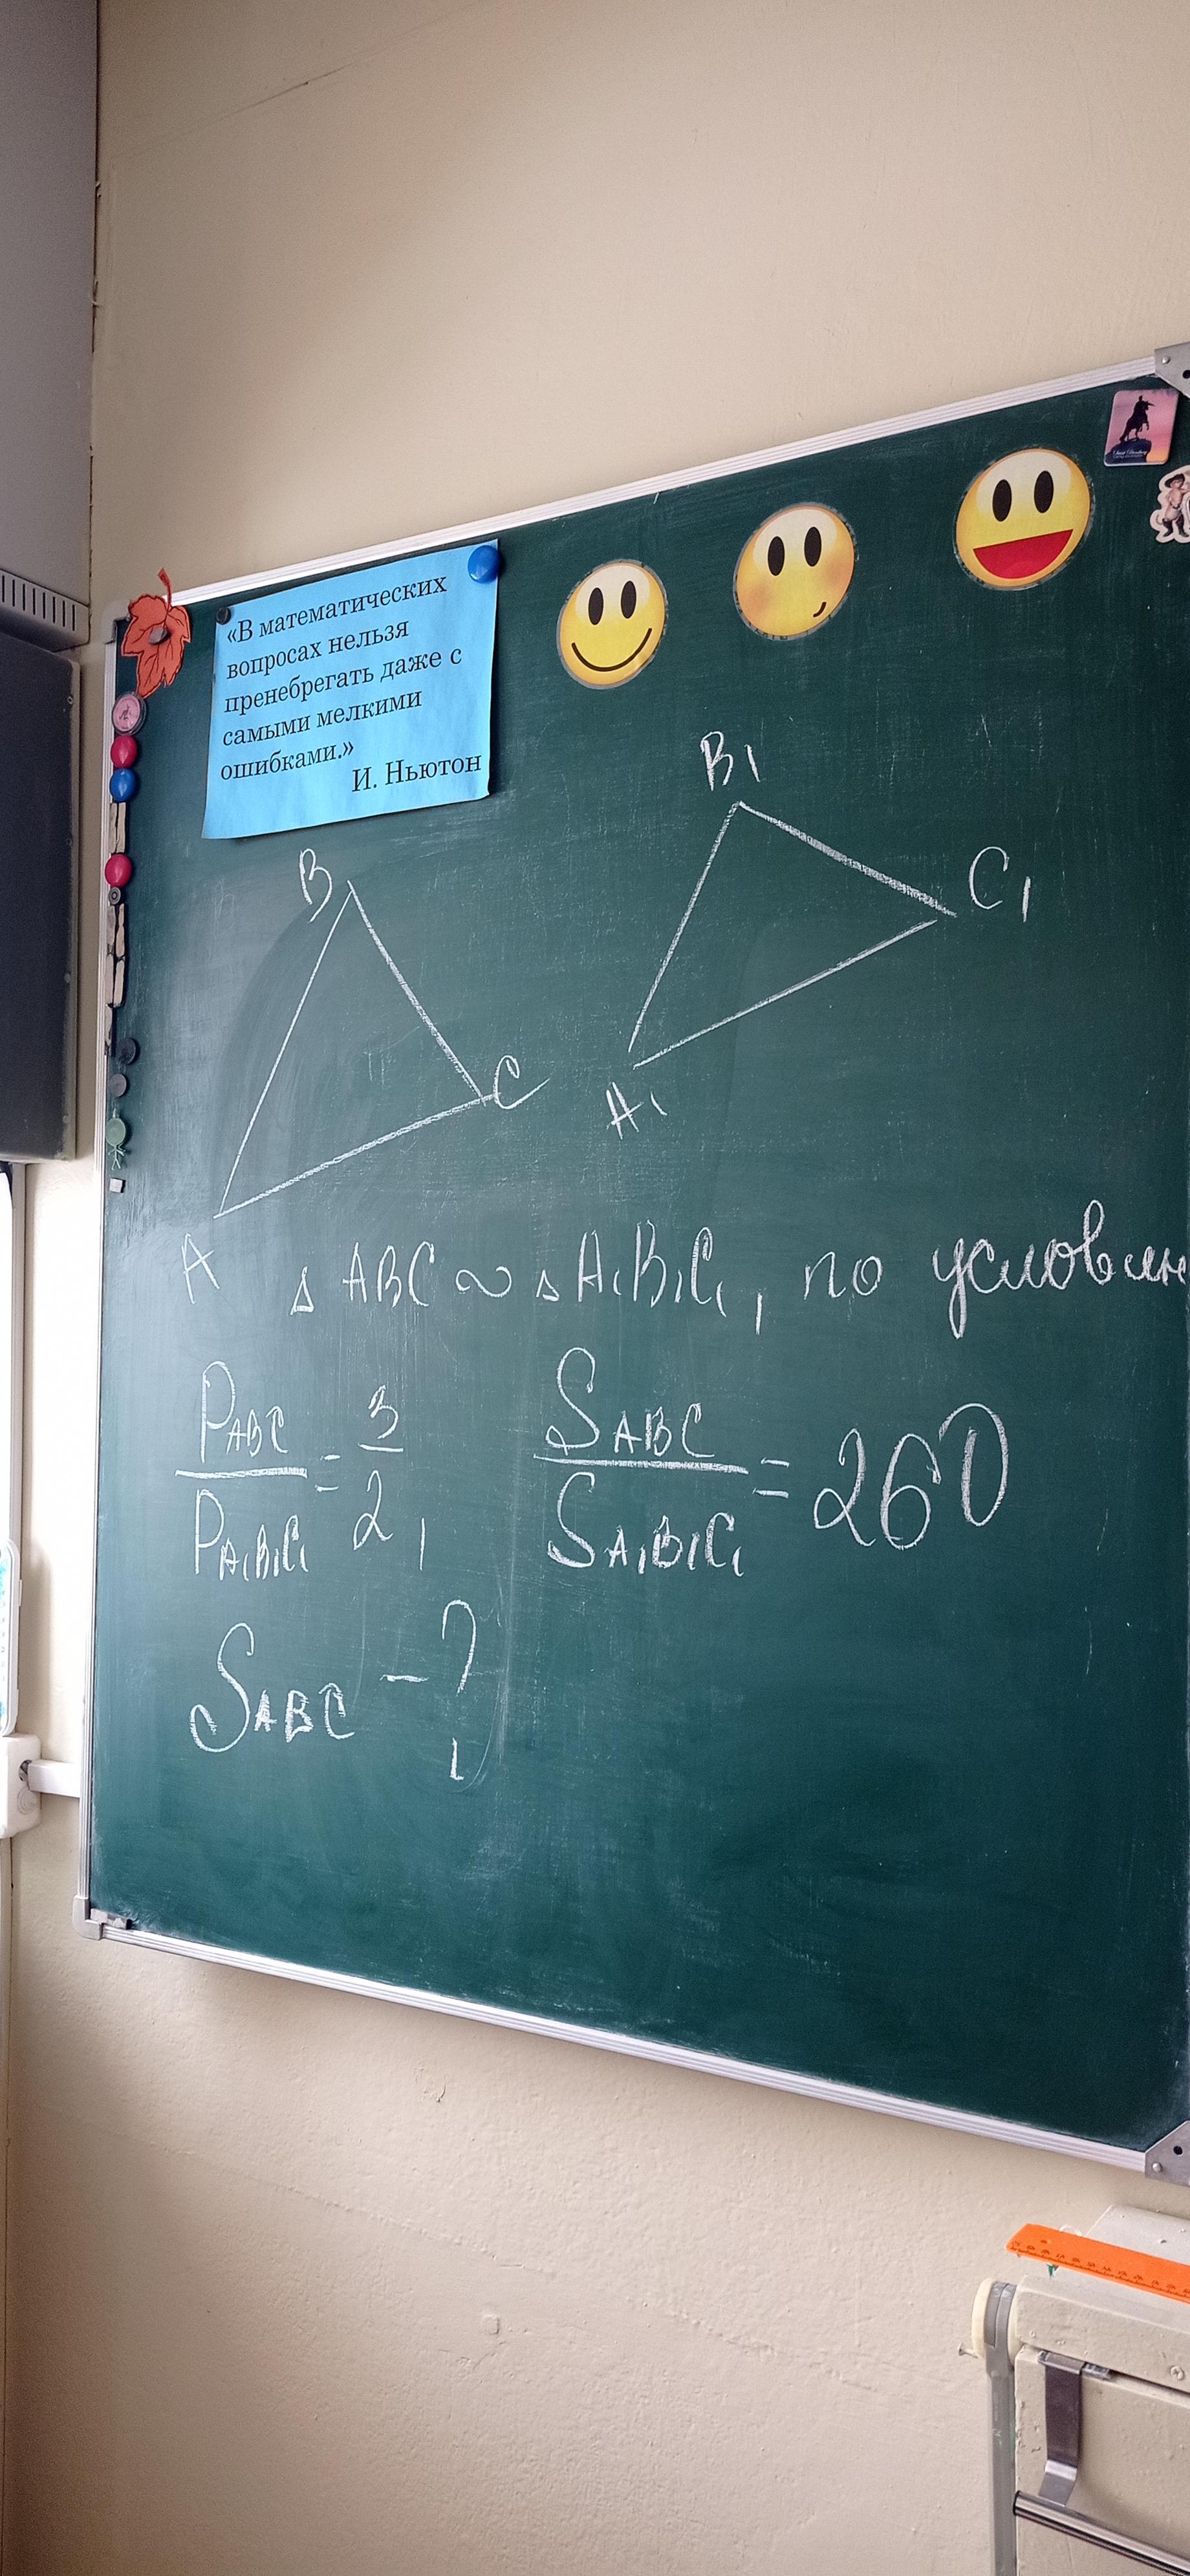 «В математических
вопросах нельзя
пренебрегать даже с
самыми мелкими
ошибками.»
И. Ньютон
B
C
A
B₁
C₁
A₁
△ ABC ∾ △ A₁B₁C₁, по условию
P_ABC / P_A₁B₁C₁ = 3/2, S_ABC / S_A₁B₁C₁ = 260
S_ABC - ?